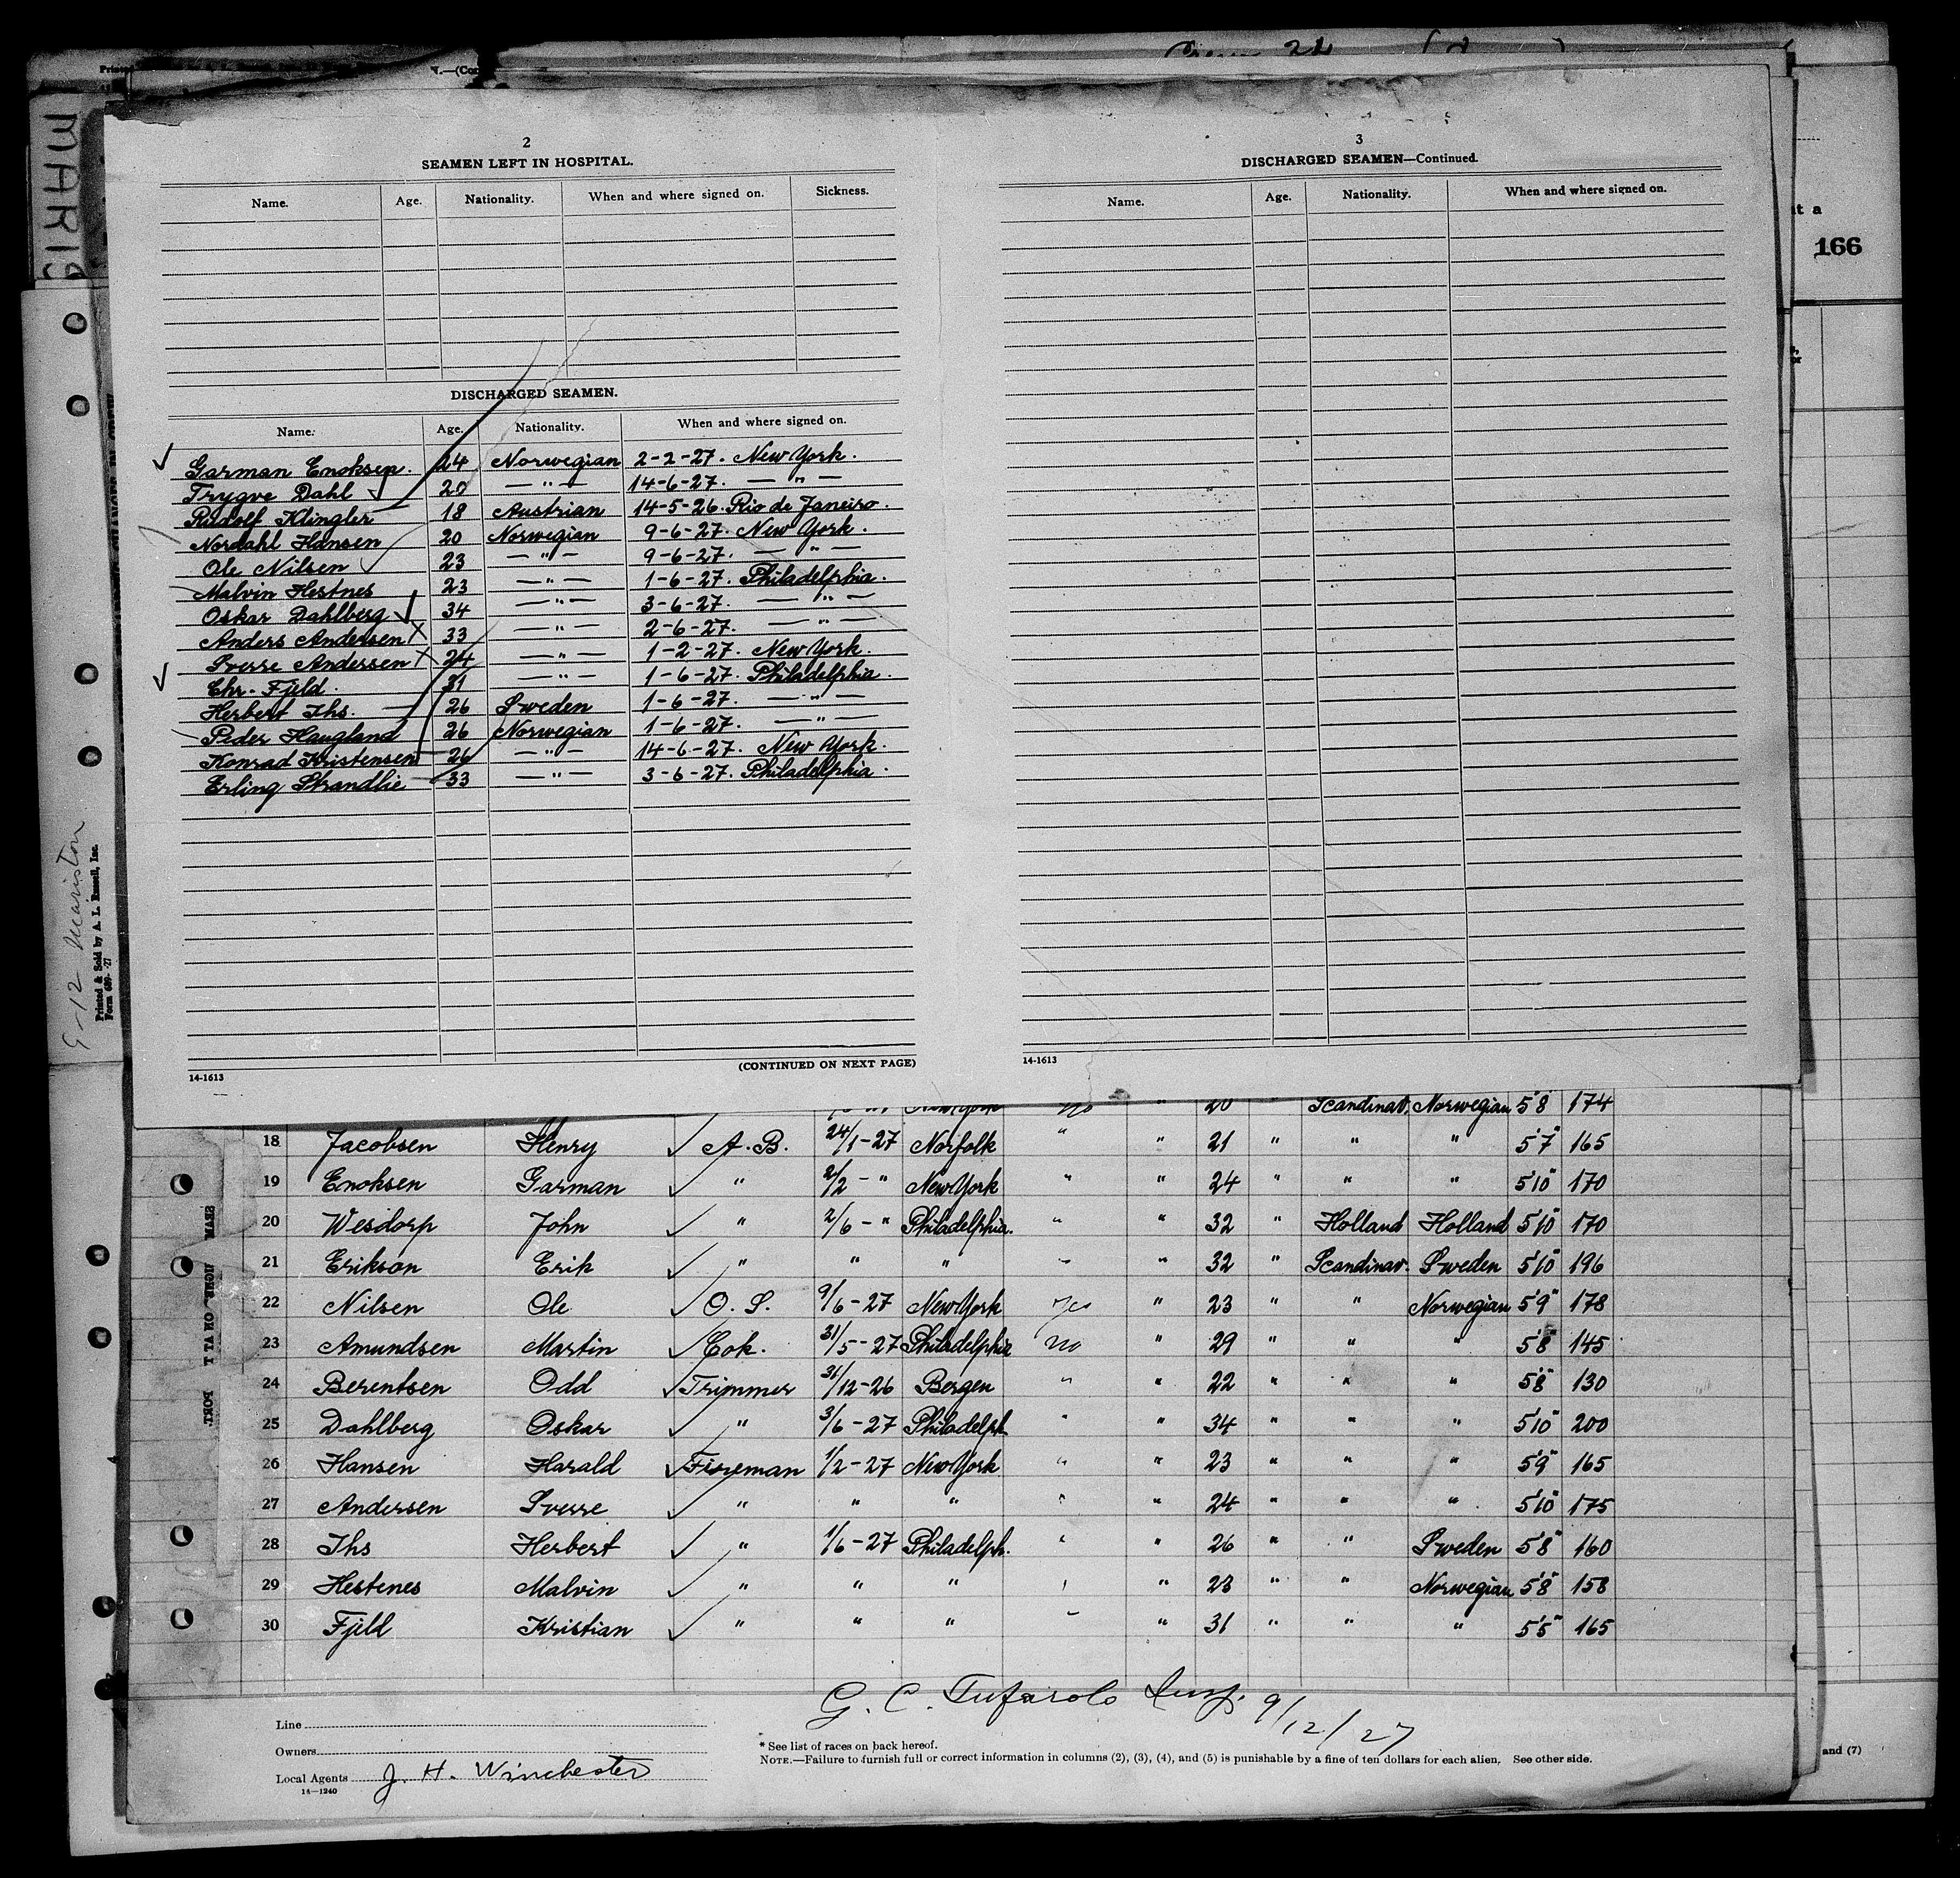 166
MARIS
2
SEAMEN LEFT IN HOSPITAL.
Name. Age. Nationality. When and where signed on. Sickness.
DISCHARGED SEAMEN.
Name. Age. Nationality. When and where signed on.
Garman Enoksen. 24 Norwegian 2-2-27. New York.
Trygve Dahl 20 — " — 14-6-27. — " —
Rudolf Klingler 18 Austrian 14-5-26. Rio de Janeiro.
Nordahl Hansen 20 Norwegian 9-6-27. New York.
Ole Nilsen 23 — " — 9-6-27. — " —
Malvin Hestnes 23 — " — 1-6-27. Philadelphia.
Oskar Dahlberg 34 — " — 3-6-27. — " —
Anders Andersen X 33 — " — 2-6-27. — " —
Sverre Andersen X 24 — " — 1-2-27. New York.
Chr. Fjeld. 31 — " — 1-6-27. Philadelphia.
Herbert Ihs. 26 Sweden 1-6-27. — " —
Peder Haugland 26 Norwegian 1-6-27. — " —
Konrad Kristensen 26 — " — 14-6-27. New York.
Erling Strandlie 33 — " — 3-6-27. Philadelphia.
(CONTINUED ON NEXT PAGE)
14-1613
3
DISCHARGED SEAMEN—Continued.
Name. Age. Nationality. When and where signed on.
14-1613
Printed & Sold by A. L. Russell, Inc.
Form 689- -27
New York no " 20 Scandinav. Norwegian 5'8" 174
18 Jacobsen Henry ✓ A.B. 24/1-27 Norfolk " " 21 " " " 5'7" 165
19 Enoksen Garman ✓ " 2/2 - " New York " " 24 " " " 5'10" 170
20 Wesdorp John ✓ " 2/6 - " Philadelphia. " " 32 " Holland Holland 5'10" 170
21 Erikson Erik ✓ " " " " " 32 " Scandinav. Sweden 5'10" 196
22 Nilsen Ole ✓ O.S. 9/6-27 New York Yes " 23 " " Norwegian 5'9" 178
23 Amundsen Martin ✓ Cok. 31/5-27 Philadelphia no " 29 " " " 5'8" 145
24 Berentsen Odd ✓ Trimmer 31/12-26 Bergen " " 22 " " " 5'8" 130
25 Dahlberg Oskar ✓ " 3/6-27 Philadelph. " " 34 " " " 5'10" 200
26 Hansen Harald ✓ Fireman 1/2-27 New York " " 23 " " " 5'9" 165
27 Andersen Sverre ✓ " " " " " 24 " " " 5'10" 175
28 Ihs Herbert ✓ " 1/6-27 Philadelph. " " 26 " " Sweden 5'8" 160
29 Hestenes Malvin ✓ " " " " " 23 " " Norwegian 5'8" 158
30 Fjeld Kristian ✓ " " " " " 31 " " " 5'5" 165
G. C. Tufarolo Insp. 9/12/27
Line
Owners
Local Agents J. H. Winchester
14—1240
* See list of races on back hereof.
NOTE.—Failure to furnish full or correct information in columns (2), (3), (4), and (5) is punishable by a fine of ten dollars for each alien. See other side.
and (7)